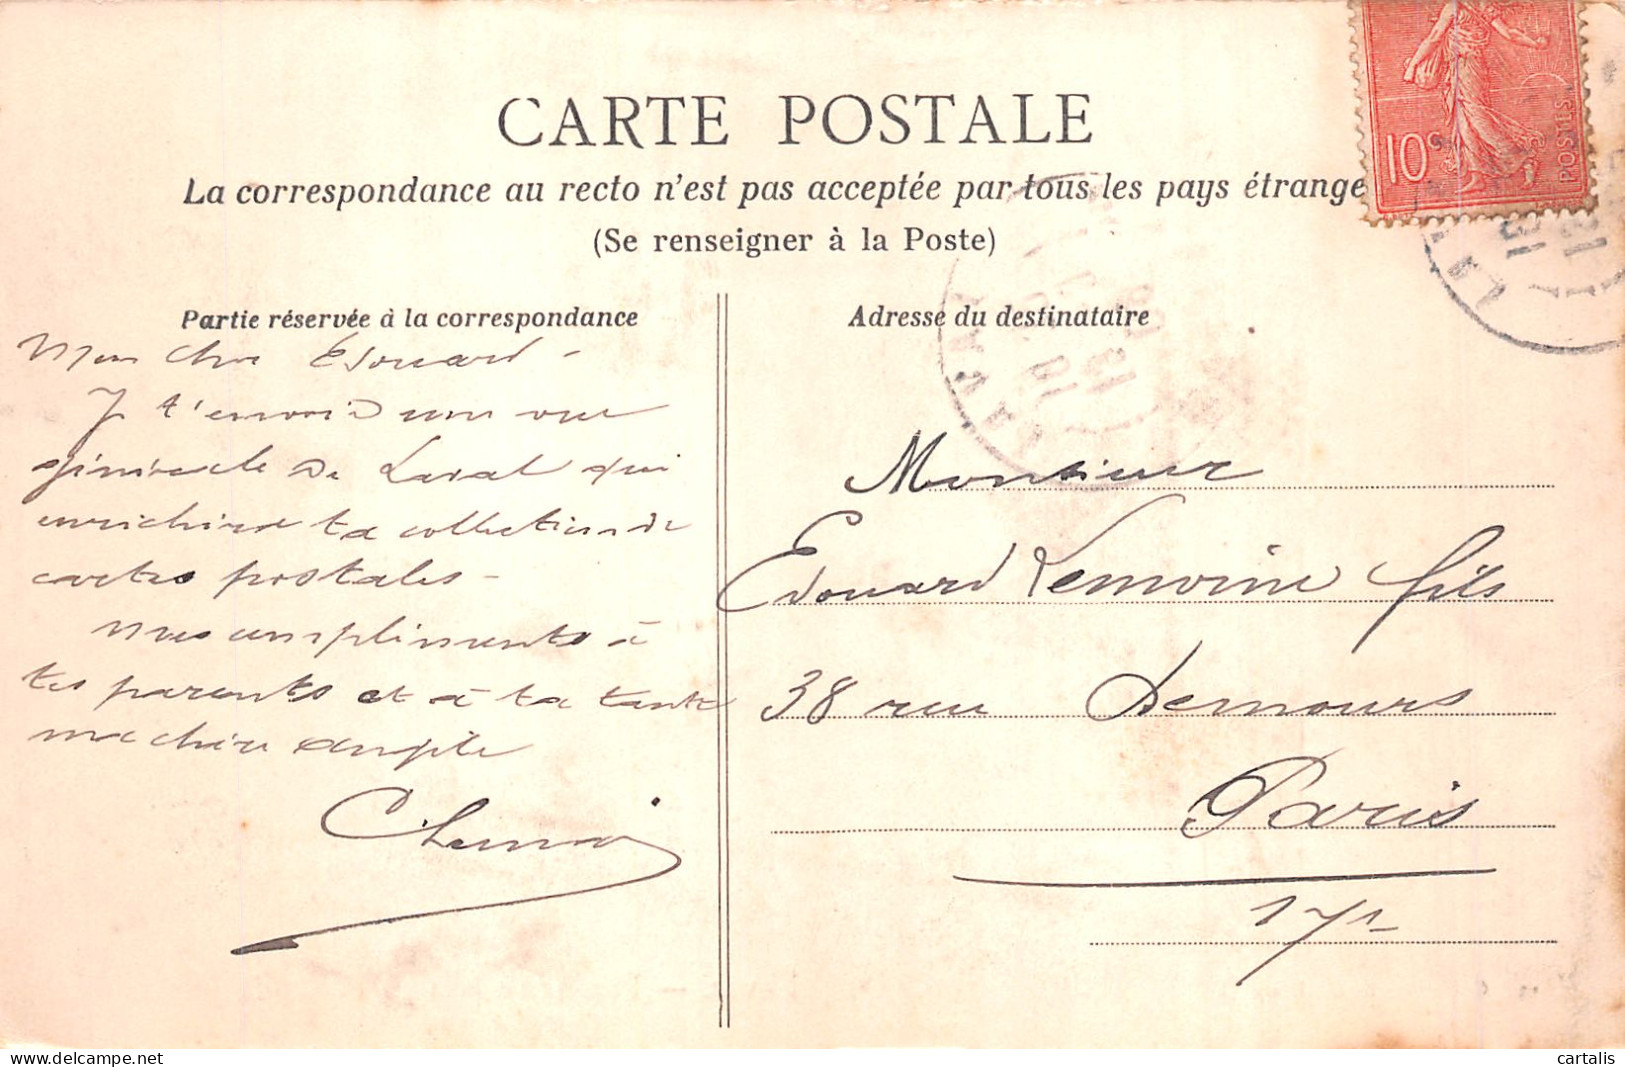 CARTE POSTALE
La correspondance au recto n'est pas acceptée par tous les pays étrange
(Se renseigner à la Poste)
10c
POSTES
Partie réservée à la correspondance
Mon cher Edouard -
Je t'envoie une vue
générale de Laval qui
enrichira ta collection de
cartes postales -
Mes compliments à
tes parents et à ta tante
Adresse du destinataire
Monsieur
Edouard Lemoine fils
38 rue Demours
Paris
17e
LAVAL
www.delcampe.net
cartalis